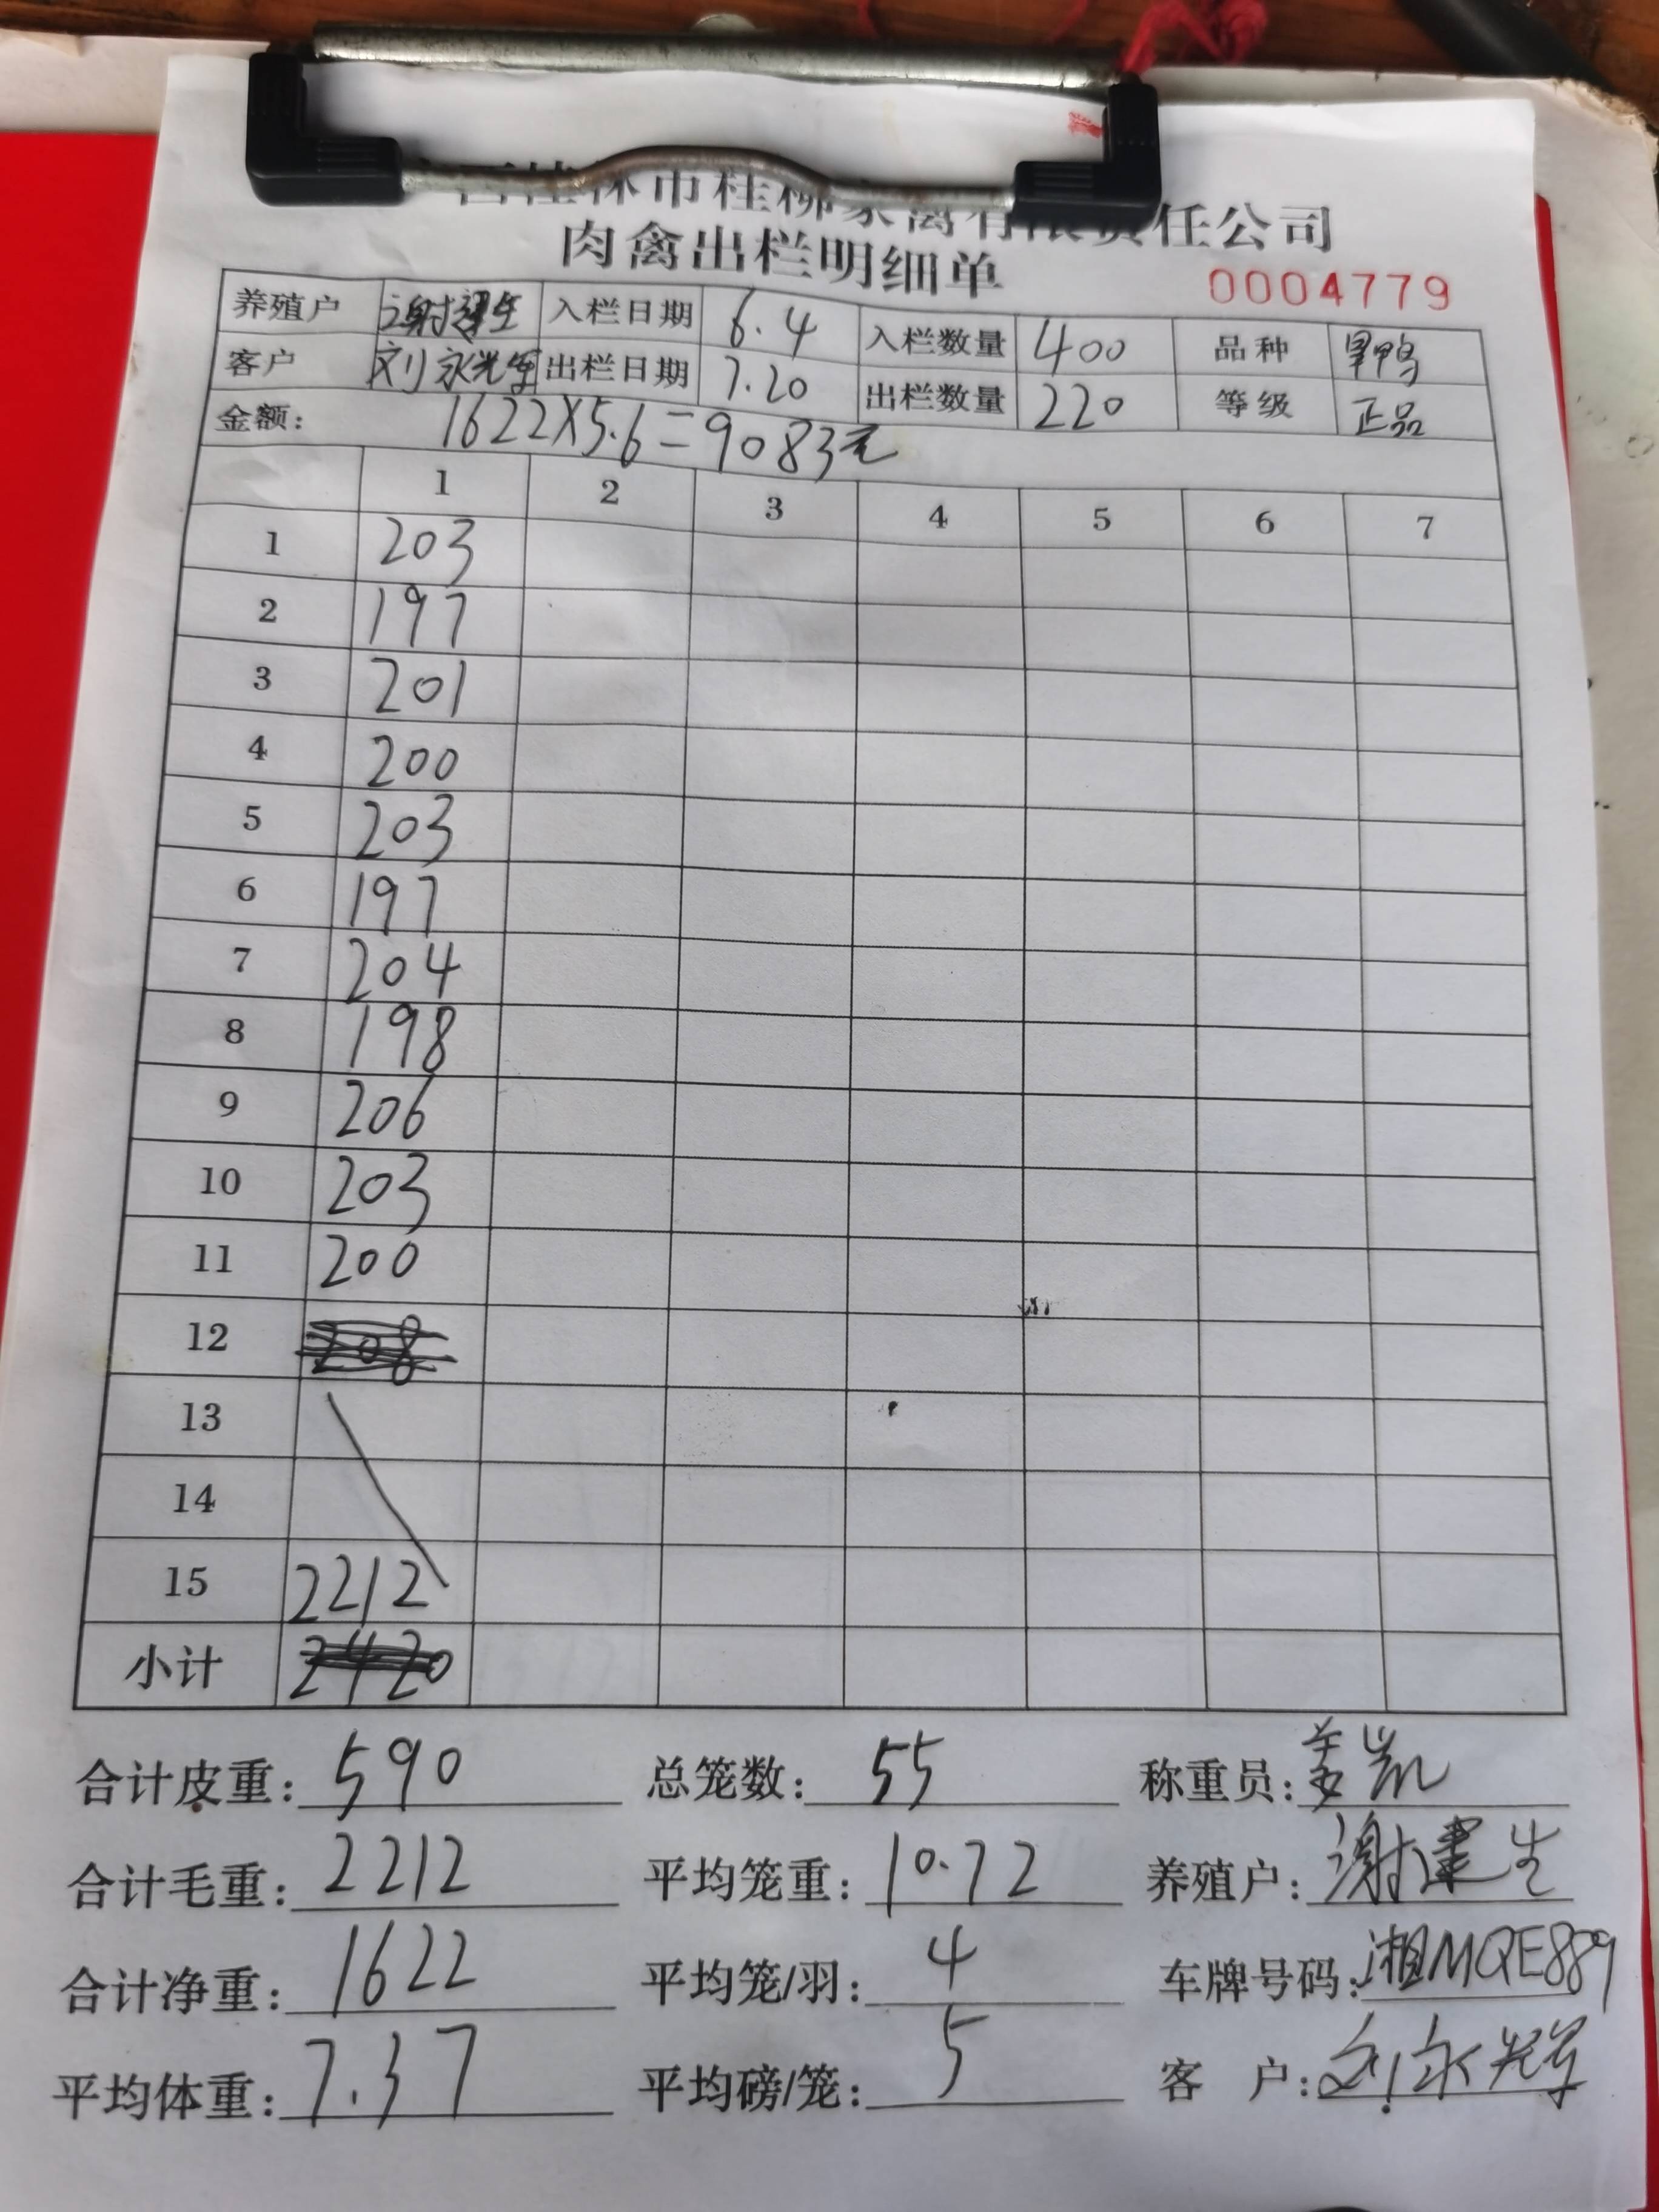 桂林市桂柳家禽有限责任公司
肉禽出栏明细单
0004779
养殖户 谢建生 入栏日期 6.4 入栏数量 400 品种 旱鸭
客户 刘永光军 出栏日期 7.20 出栏数量 220 等级 正品
金额: 1622X5.6=9083元
1 2 3 4 5 6 7
1 203
2 197
3 201
4 200
5 203
6 197
7 204
8 198
9 206
10 203
11 200
12 208
13
14
15 2212
小计 2420
合计皮重: 590 总笼数: 55 称重员: 姜凯
合计毛重: 2212 平均笼重: 10.72 养殖户: 谢建生
合计净重: 1622 平均笼/羽: 4 车牌号码: 湘MQE889
平均体重: 7.37 平均磅/笼: 5 客 户: 刘永